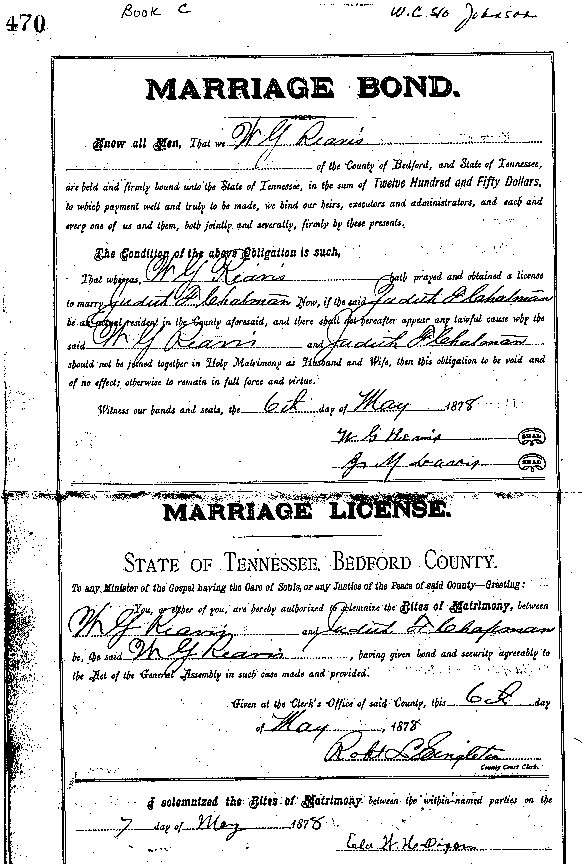 470
Book C
W.C. Sto Johnson
MARRIAGE BOND.
Know all Men, That we W G Reavis
of the County of Bedford, and State of Tennessee,
are held and firmly bound unto the State of Tennessee, in the sum of Twelve Hundred and Fifty Dollars,
to which payment well and truly to be made, we bind our heirs, executors and administrators, and each and
every one of us and them, both jointly and severally, firmly by these presents.
The Condition of the above Obligation is such,
That whereas, W G Reavis hath prayed and obtained a license
to marry Judith F Chatman Now, if the said Judith F Chatman
be an actual resident in the County aforesaid, and there shall not hereafter appear any lawful cause why the
said W G Reavis and Judith F Chatman
should not be joined together in Holy Matrimony as Husband and Wife, then this obligation to be void and
of no effect; otherwise to remain in full force and virtue.
Witness our hands and seals, the 6th day of May 1878
W G Reavis SEAL
M SEAL
MARRIAGE LICENSE.
STATE OF TENNESSEE, BEDFORD COUNTY.
To any Minister of the Gospel having the Care of Souls, or any Justice of the Peace of said County—Greeting:
You, or either of you, are hereby authorized to solemnize the Rites of Matrimony, between
W G Reavis and Judith F Chapman
he, the said W G Reavis, having given bond and security agreeably to
the Act of the General Assembly in such case made and provided.
Given at the Clerk's Office of said County, this 6th day
of May, 1878
Robt L Singleton
County Court Clerk.
I solemnized the Rites of Matrimony between the within-named parties on the
7 day of May 1878